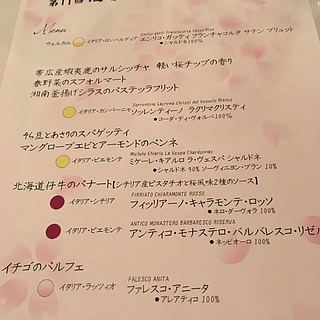 第11回
Menu
Enrico gatti Franciacorta Saten Brut
ウェルカム イタリア・ロンバルディア エンリコ・ガッティフランチャコルタ サテン ブリュット
●シャルドネ100%
帯広産蝦夷鹿のサルシッチャ 軽い桜チップの香り
春野菜のスフォルマート
湘南釜揚げシラスのパステッラフリット
Sorrentino Lacryma Christi del Vesuvio Bianco
イタリア・カンパーニャ ソッレンティーノ ラクリマクリスティ
●コーダ・ディ・ヴォルペ100%
そら豆とあさりのスパゲッティ
マングローブエビとアーモンドのペンネ
Michele Chiarlo La Vespa Chardonnay
イタリア・ピエモンテ ミケーレ・キアルロ・ヴェスパ シャルドネ
●シャルドネ 90% ソーヴィニヨン・ブラン 10%
北海道仔牛のパナート【シチリア産ピスタチオと桜風味2種のソース】
FIRRIATO CHIARAMONTE ROSSO
イタリア・シチリア フィッリアーノ・キャラモンテ・ロッソ
●ネロ・ダーヴォラ 100%
ANTICO MONASTERO BARBARESCO RISERVA
イタリア・ピエモンテ アンティコ・モナステロ・バルバレスコ・リゼル
●ネッビオーロ 100%
イチゴのパルフェ
FALESCO ANITA
イタリア・ラッツィオ ファレスコ・アニータ
●アレアティコ 100%